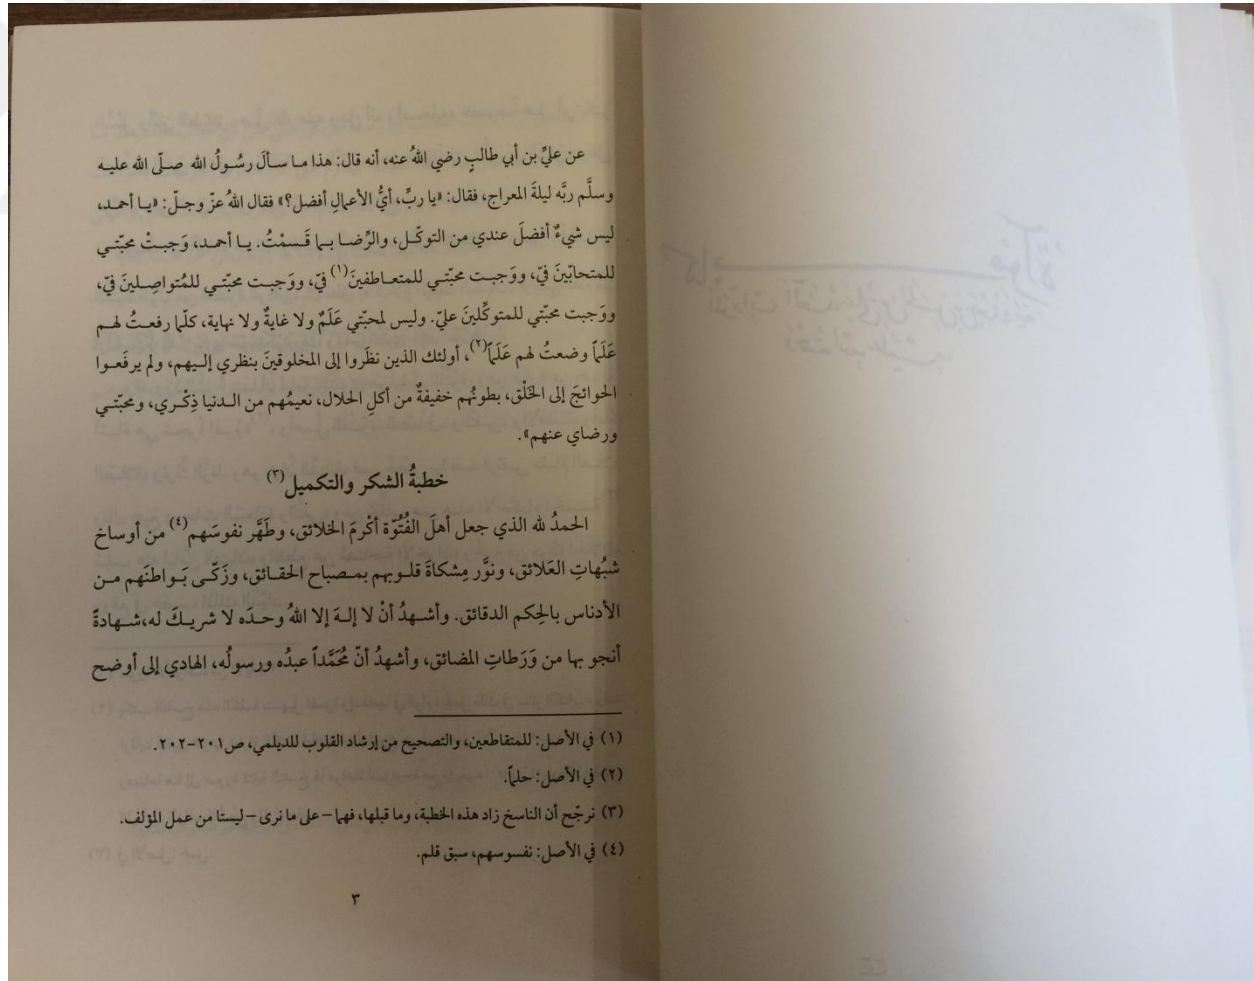 عن عليِّ بن أبي طالبٍ رضي اللهُ عنه، أنه قال: هذا ما سألَ رسُولُ الله صلّى الله عليه
وسلَّم ربَّه ليلةَ المعراج، فقال: «يا ربِّ، أيُّ الأعمالِ أفضل؟» فقال اللهُ عزّ وجلّ: «يا أحمد،
ليس شيءٌ أفضلَ عندي من التوكّل، والرِّضا بما قَسمْتُ. يا أحمد، وَجبتْ محبّتي
للمتحابّينَ فيّ، ووَجبت محبّتي للمتعاطفينَ(١) فيّ، ووَجبت محبّتي للمُتواصِلينَ فيّ،
ووَجبت محبّتي للمتوكِّلينَ عليّ. وليس لمحبّتي عَلَمٌ ولا غايةٌ ولا نهاية، كلّما رفعتُ لهم
عَلَماً وضعتُ لهم عَلَماً(٢)، أولئك الذين نظَروا إلى المخلوقينَ بنظري إليهم، ولم يرفَعوا
الحوائجَ إلى الخَلْق، بطونُهم خفيفةٌ من أكلِ الحلال، نعيمُهم من الدنيا ذِكْري، ومحبّتي
ورضاي عنهم».
خطبةُ الشكر والتكميل(٣)
الحمدُ لله الذي جعل أهلَ الفُتُوّة أكْرمَ الخلائق، وطَهَّر نفوسَهم(٤) من أوساخ
شبُهاتِ العَلائق، ونوَّر مِشكاةَ قلوبهم بمصباح الحقائق، وزَكّى بَواطنَهم من
الأدناس بالحِكم الدقائق. وأشهدُ أنْ لا إلهَ إلا اللهُ وحدَه لا شريكَ له،شهادةً
أنجو بها من وَرَطاتِ المضائق، وأشهدُ أنّ مُحَمَّداً عبدُه ورسولُه، الهادي إلى أوضح
(١) في الأصل: للمتقاطعين، والتصحيح من إرشاد القلوب للديلمي، ص٢٠١-٢٠٢.
(٢) في الأصل: حلماً.
(٣) نرجّح أن الناسخ زاد هذه الخطبة، وما قبلها، فهما – على ما نرى – ليستا من عمل المؤلف.
(٤) في الأصل: نفسوسهم، سبق قلم.
٣